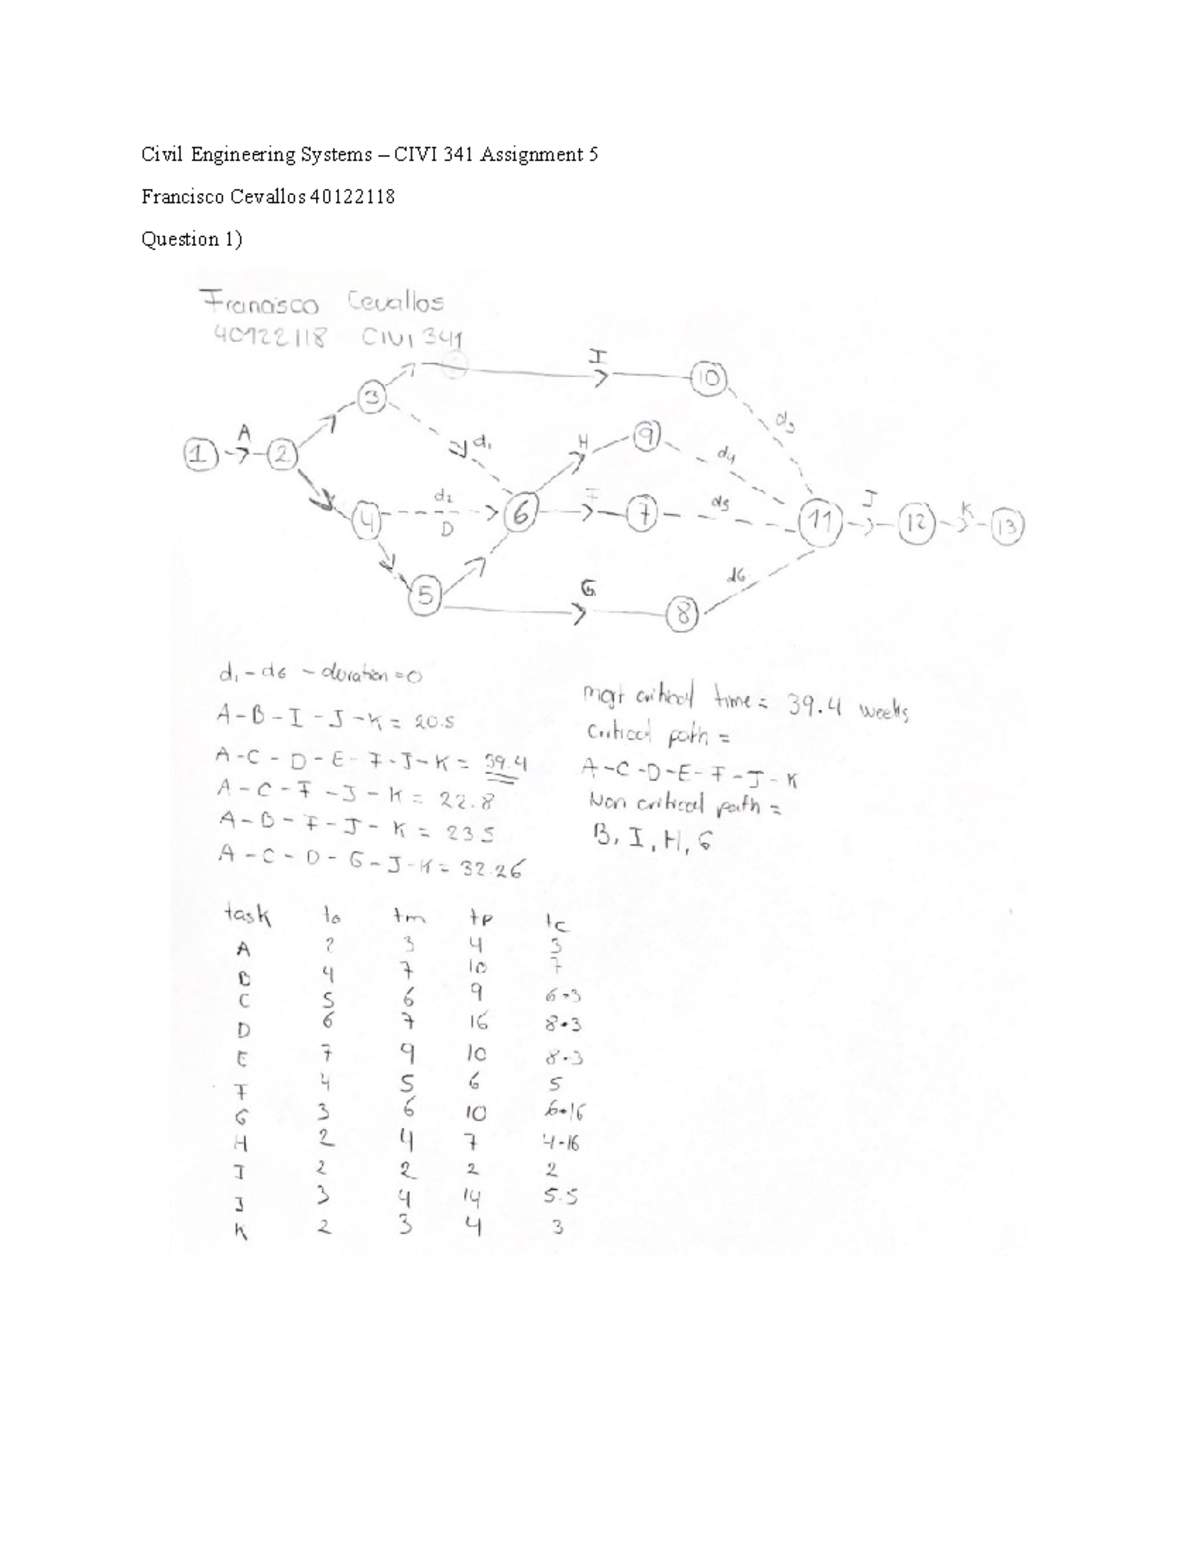 Civil Engineering Systems – CIVI 341 Assignment 5
Francisco Cevallos 40122118
Question 1)
Francisco Cevallos
40122118 CIVI 341
I
10
3
d3
A
9
d1
H
d4
1
2
d2
F
d5
J
K
4
6
7
11
12
13
D
5
G
8
d6
d1 - d6 - duration = 0
A-B-I-J-K = 20.5
A-C-D-E-F-J-K = 39.4
A-C-F-J-K = 22.8
A-B-F-J-K = 23.5
A-C-D-G-J-K = 32.26
most critical time = 39.4 weeks
Critical path =
A-C-D-E-F-J-K
Non critical path =
B, I, H, G
task to tm tp tc
A 2 3 4 3
B 4 7 10 7
C 5 6 9 6.3
D 6 7 16 8.3
E 7 9 10 8.3
F 4 5 6 5
G 3 6 10 6.16
H 2 4 7 4.16
I 2 2 2 2
J 3 4 14 5.5
K 2 3 4 3